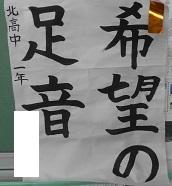 希望の
足音
北高中一年